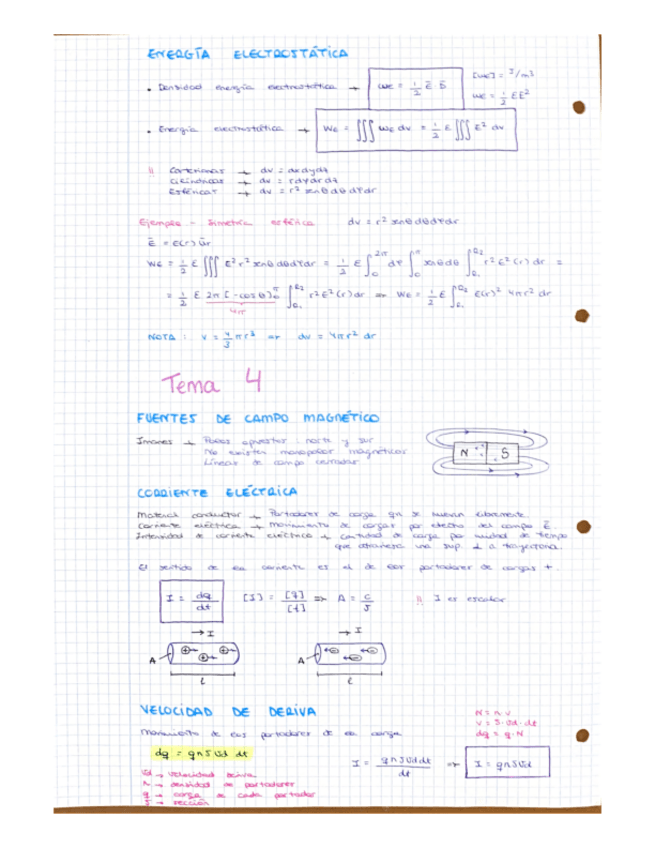 ENERGÍA ELECTROSTÁTICA
• Densidad energía electrostática → we = 1/2 Ē · D̄ [we] = J/m3
we = 1/2 E E²
• Energía electrostática → We = ∭ we dv = 1/2 E ∭ E² dv
|| Cartesianas → dv = dxdydz
Cilíndricas → dv = rdφdrdz
Esféricas → dv = r² senθ dθ dφ dr
Ejemplo - Simetría esférica dv = r² senθ dθ dφ dr
Ē = E(r) ūr
We = 1/2 E ∭ E² r² senθ dθ dφ dr = 1/2 E ∫₀^2π dφ ∫₀^π senθ dθ ∫ r² E²(r) dr =
= 1/2 E 2π [-cosθ]₀^π ∫ r² E²(r) dr ⇒ We = 1/2 E ∫ E(r)² 4πr² dr
4π
NOTA : V = 4/3 πr³ ⇒ dv = 4πr² dr
Tema 4
FUENTES DE CAMPO MAGNÉTICO
Imanes → Polos opuestos : norte y sur
No existen monopolos magnéticos
Líneas de campo cerradas
N S
CORRIENTE ELÉCTRICA
Material conductor → Portadores de carga qn se mueven libremente
Corriente eléctrica → Movimiento de cargas por efecto del campo Ē
Intensidad de corriente eléctrica → cantidad de carga por unidad de tiempo
que atraviesa una sup. ⊥ a trayectoria.
El sentido de la corriente es el de los portadores de cargas +.
I = dq/dt [I] = [q]/[t] ⇒ A = C/S || I es escalar
→ I → I
A A
l l
VELOCIDAD DE DERIVA
N = n · V
V = S · Vd · dt
dq = q · N
Movimiento de los portadores de la carga
dq = q n S Vd dt
I = q n S Vd dt / dt ⇒ I = q n S Vd
Vd → velocidad deriva
n → densidad de portadores
q → carga de cada portador
S → sección